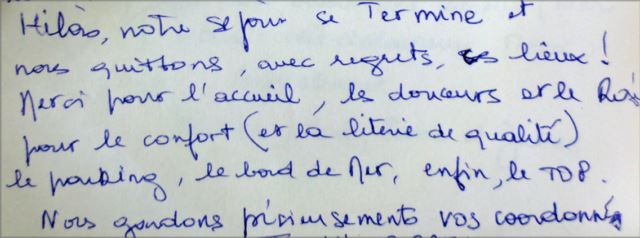 Hélas, notre séjour se Termine et
nous quittons, avec regrets, ces lieux !
Merci pour l'accueil, les douceurs et le Rosé
pour le confort (et la literie de qualité)
le parking, le bord de Mer, enfin, le TOP.
Nous gardons précieusement vos coordonnées